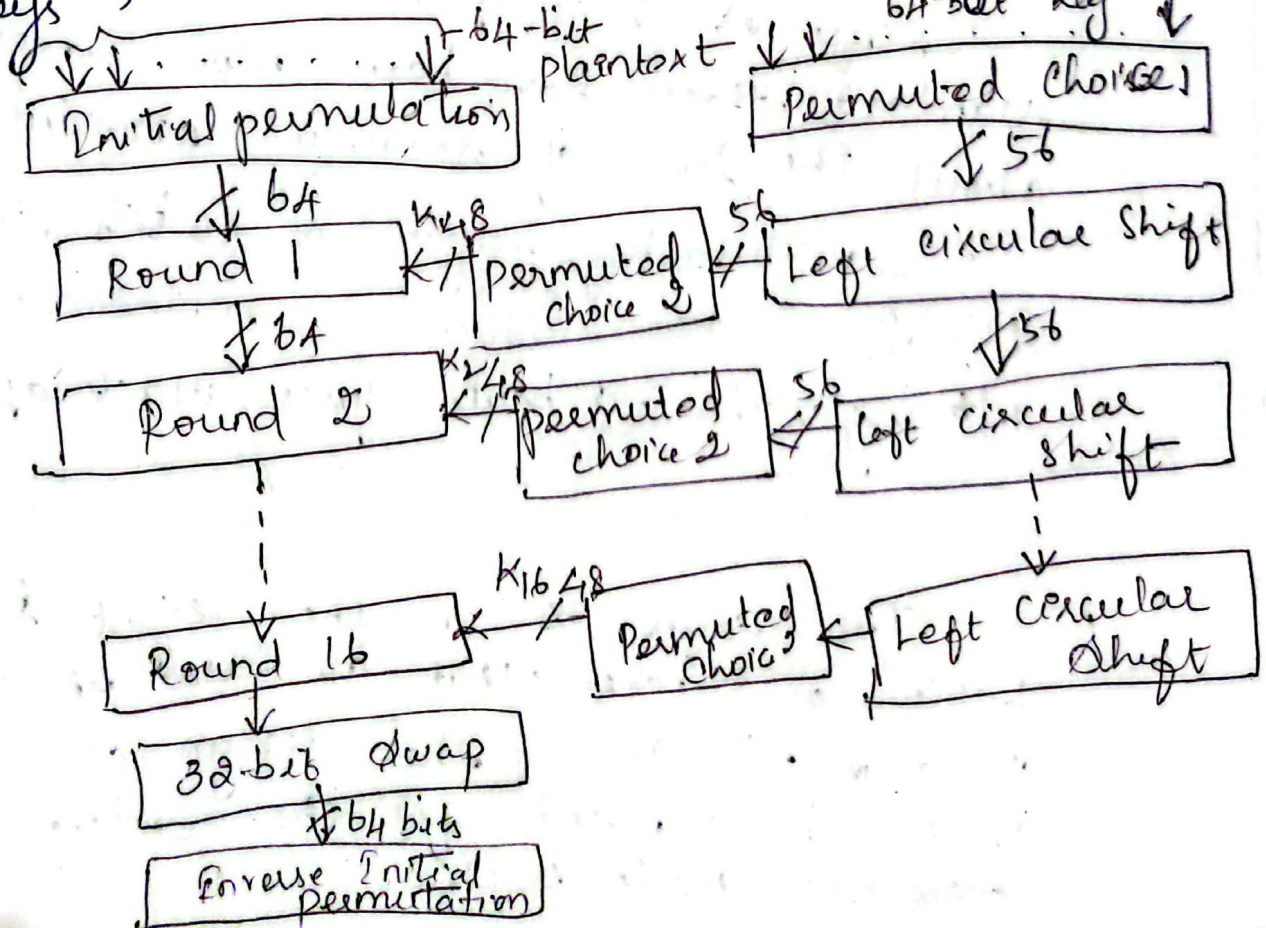 ys
64-bit
plaintext
64-bit key
Initial permutation
Permuted Choice 1
64
56
Round 1
K1 48
permuted
choice 2
56
Left circular Shift
64
56
Round 2
K2 48
permuted
choice 2
56
left circular
shift
Round 16
K16 48
Permuted
Choic
Left circular
Shift
32-bit Swap
64 bits
Inverse Initial
permutation